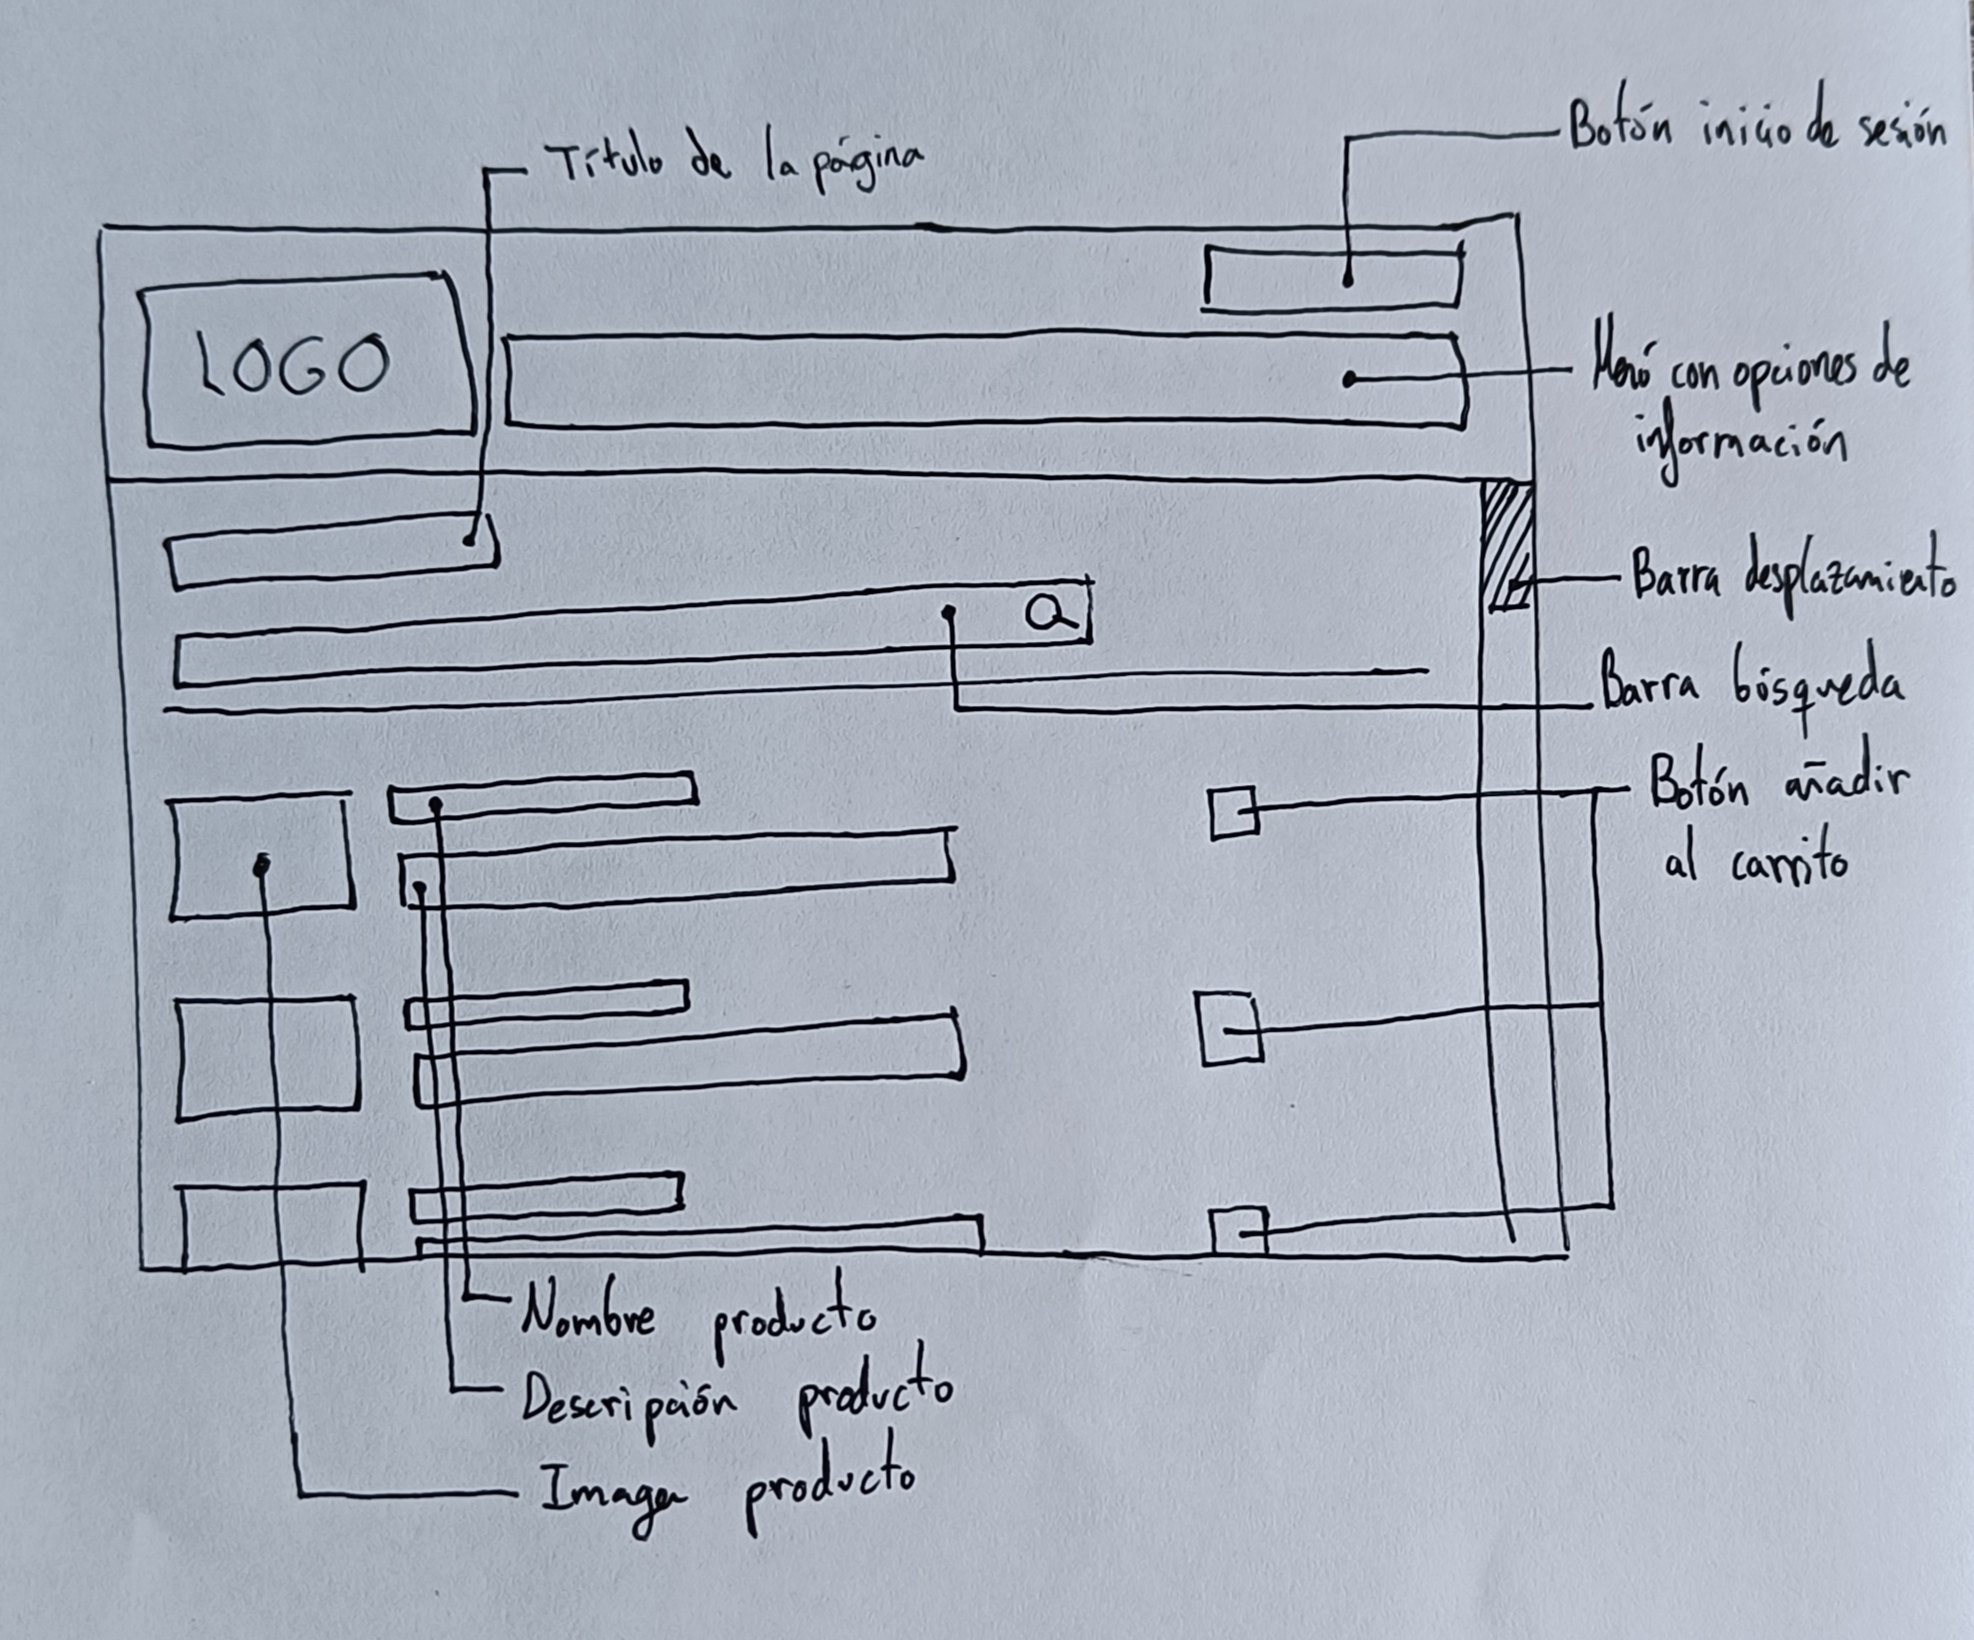 Botón inicio de sesión
Título de la página
LOGO
Menú con opciones de
información
Barra desplazamiento
Barra búsqueda
Botón añadir
al carrito
Nombre producto
Descripción producto
Imagen producto